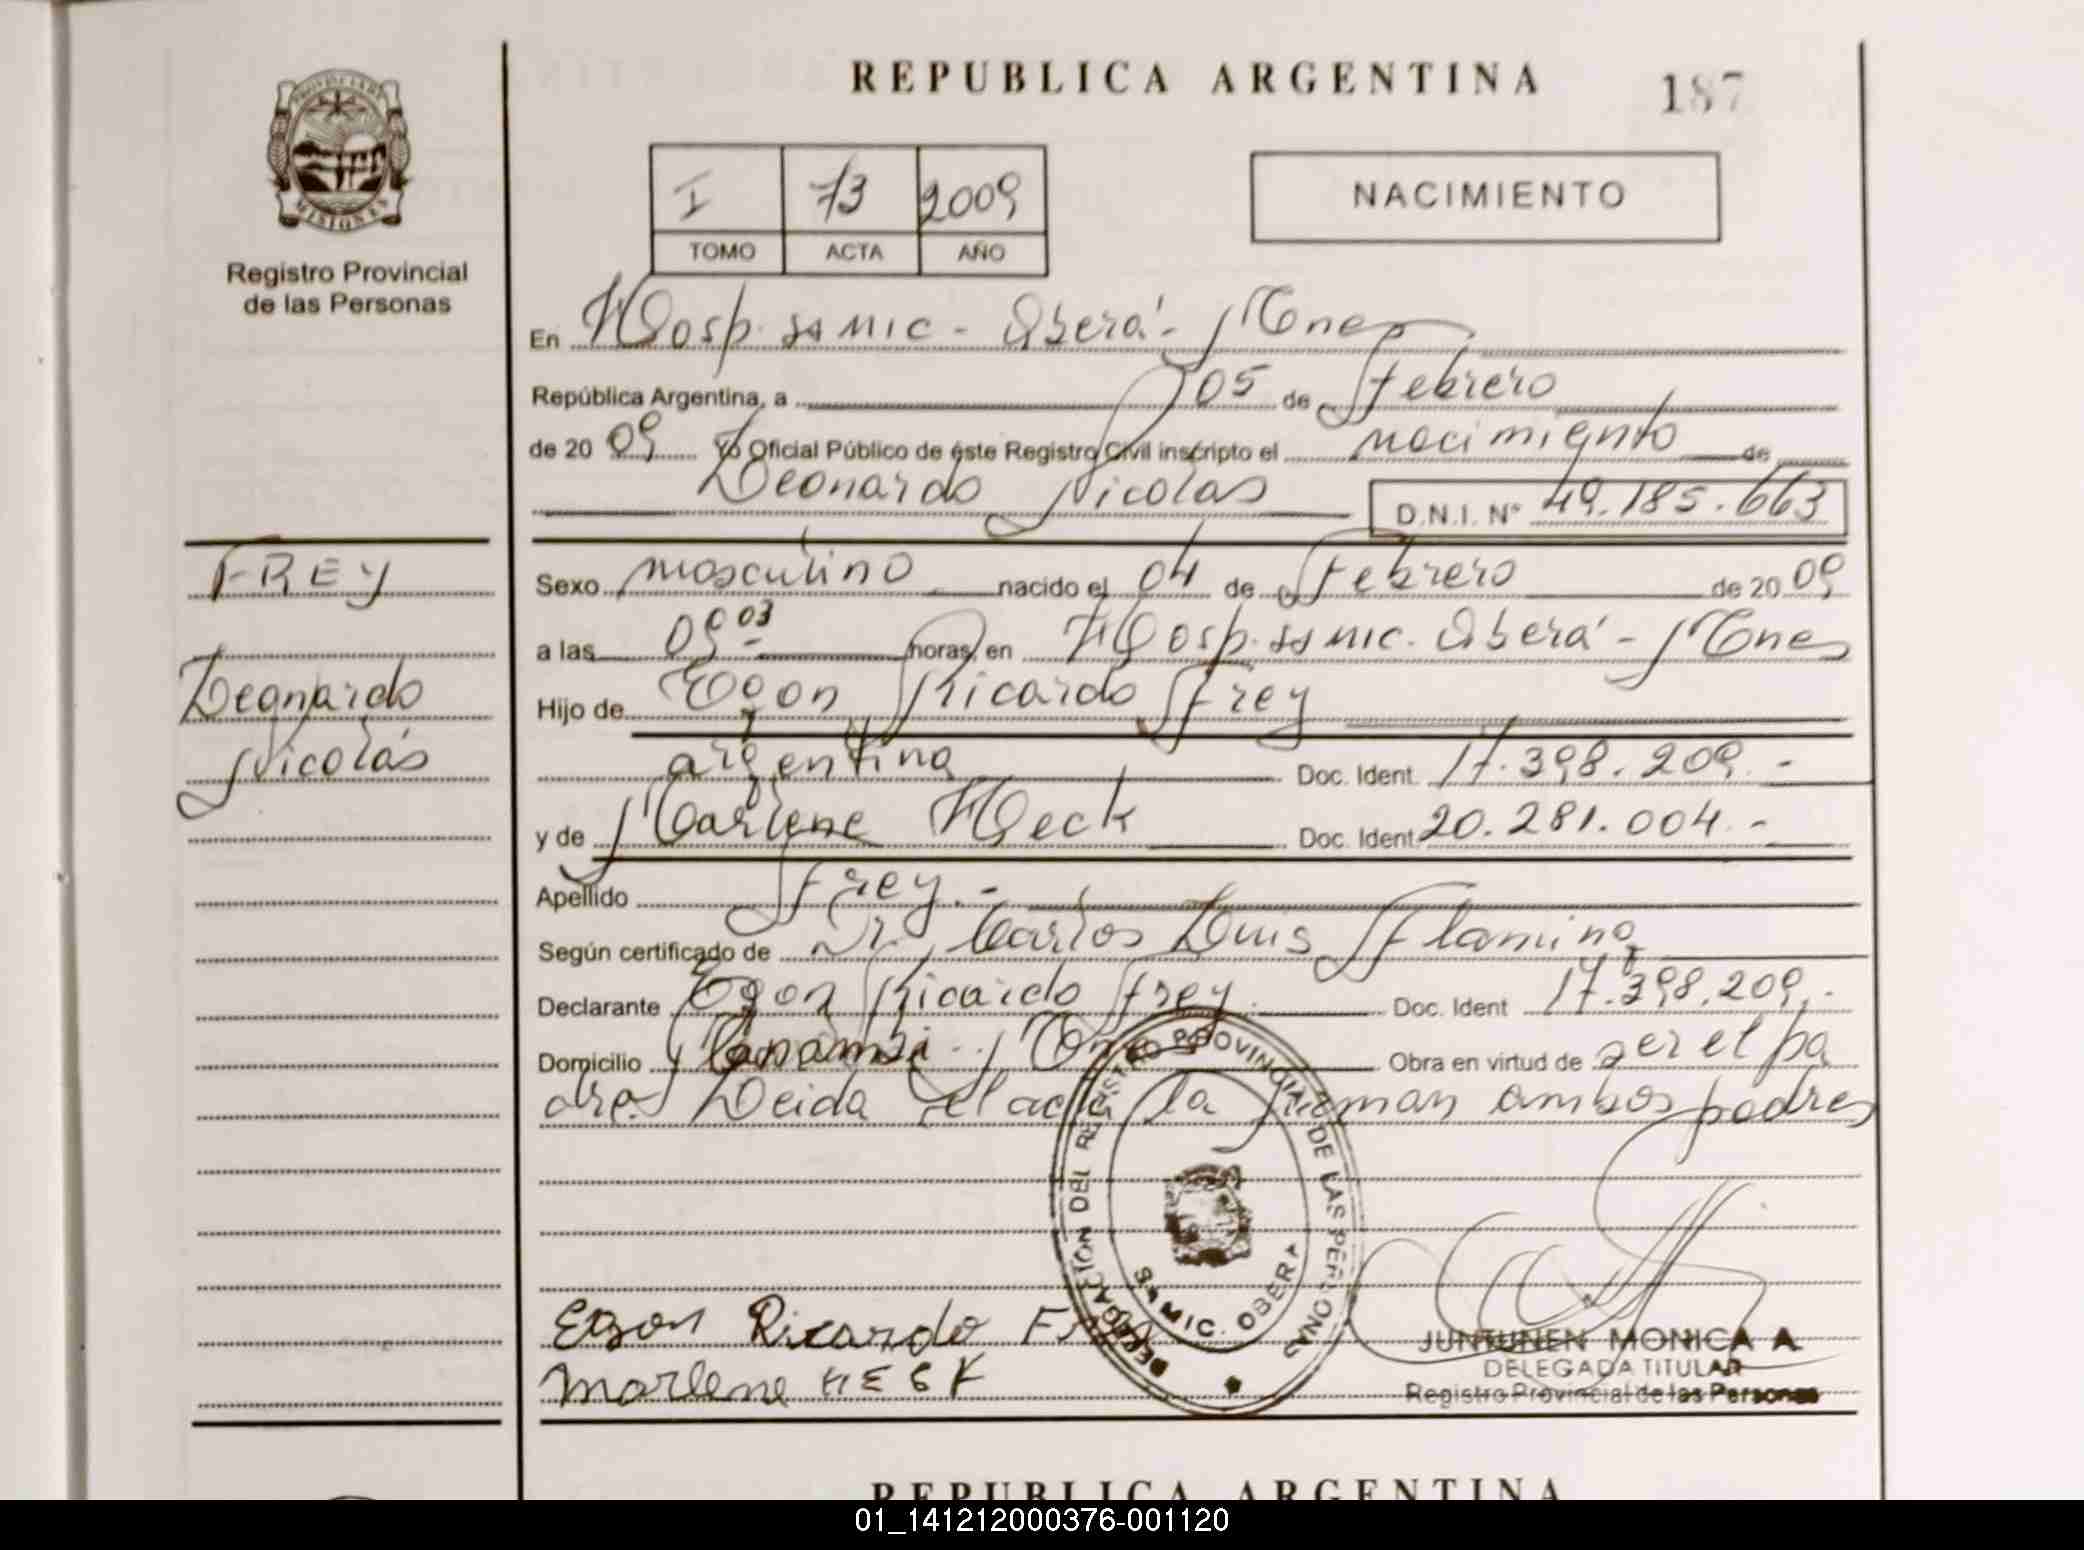 REPUBLICA ARGENTINA
187
PROVINCIA DE MISIONES
Registro Provincial
de las Personas
I 73 2009
TOMO ACTA AÑO
NACIMIENTO
En Hosp. SAMIC - Oberá - Mnes
República Argentina, a 05 de Febrero
de 20 09 Yo Oficial Público de éste Registro Civil inscripto el nacimiento de
Leonardo Nicolás D.N.I. N° 49.185.663
FREY
Leonardo
Nicolás
Sexo masculino nacido el 04 de Febrero de 20 09
a las 09 03 horas, en Hosp. SAMIC. Oberá - Mnes
Hijo de Egon Ricardo Frey
argentina Doc. Ident. 17.398.209.-
y de Marlene Heck Doc. Ident. 20.281.004.-
Apellido Frey.-
Según certificado de Dr. Carlos Luis Flamin
Declarante Egon Ricardo Frey. Doc. Ident 17.398.209.-
Domicilio Panambí - Mnes Obra en virtud de ser el pa
dre. Leida el acta la firman ambos padres
DELEGACION DEL REGISTRO PROVINCIAL DE LAS PERSONAS
SAMIC. OBERA
Egon Ricardo Frey
Marlene HECK
JUNTUNEN MONICA A.
DELEGADA TITULAR
Registro Provincial de las Personas
REPUBLICA ARGENTINA
01_141212000376-001120